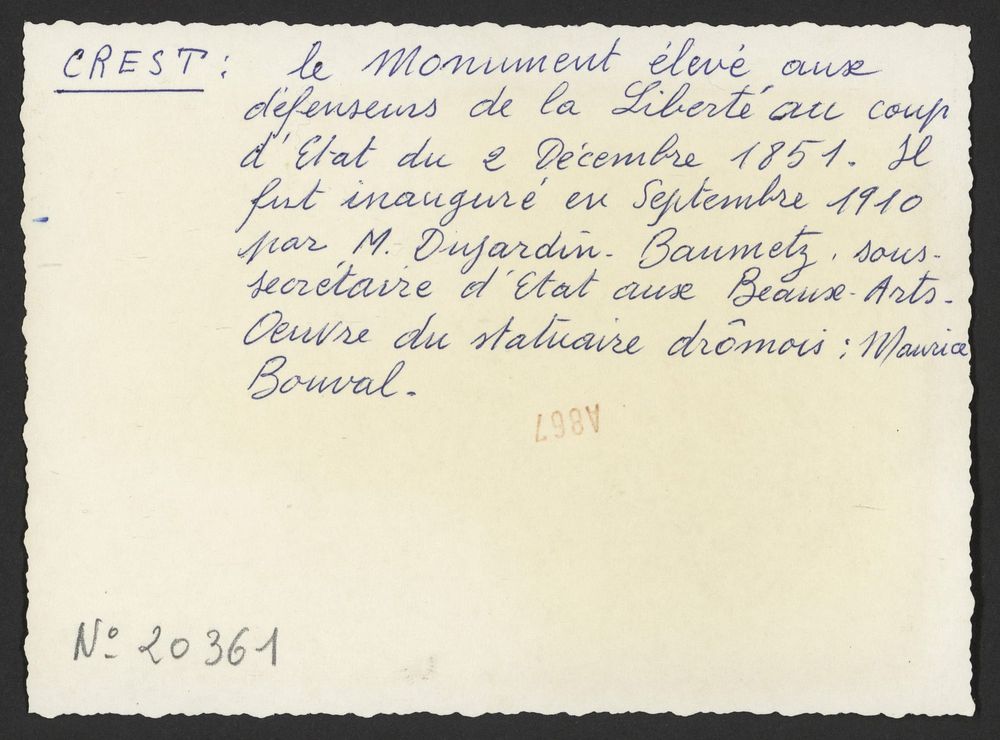 CREST : le Monument élevé aux
défenseurs de la Liberté au coup
d'Etat du 2 Décembre 1851. Il
fut inauguré en Septembre 1910
par M. Dujardin-Baumetz, sous-
secrétaire d'Etat aux Beaux-Arts-
Oeuvre du statuaire drômois : Maurice
Bouval.
A867
N° 20361